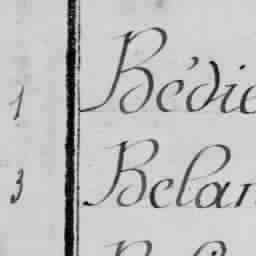 1 Bédie
3 Belan